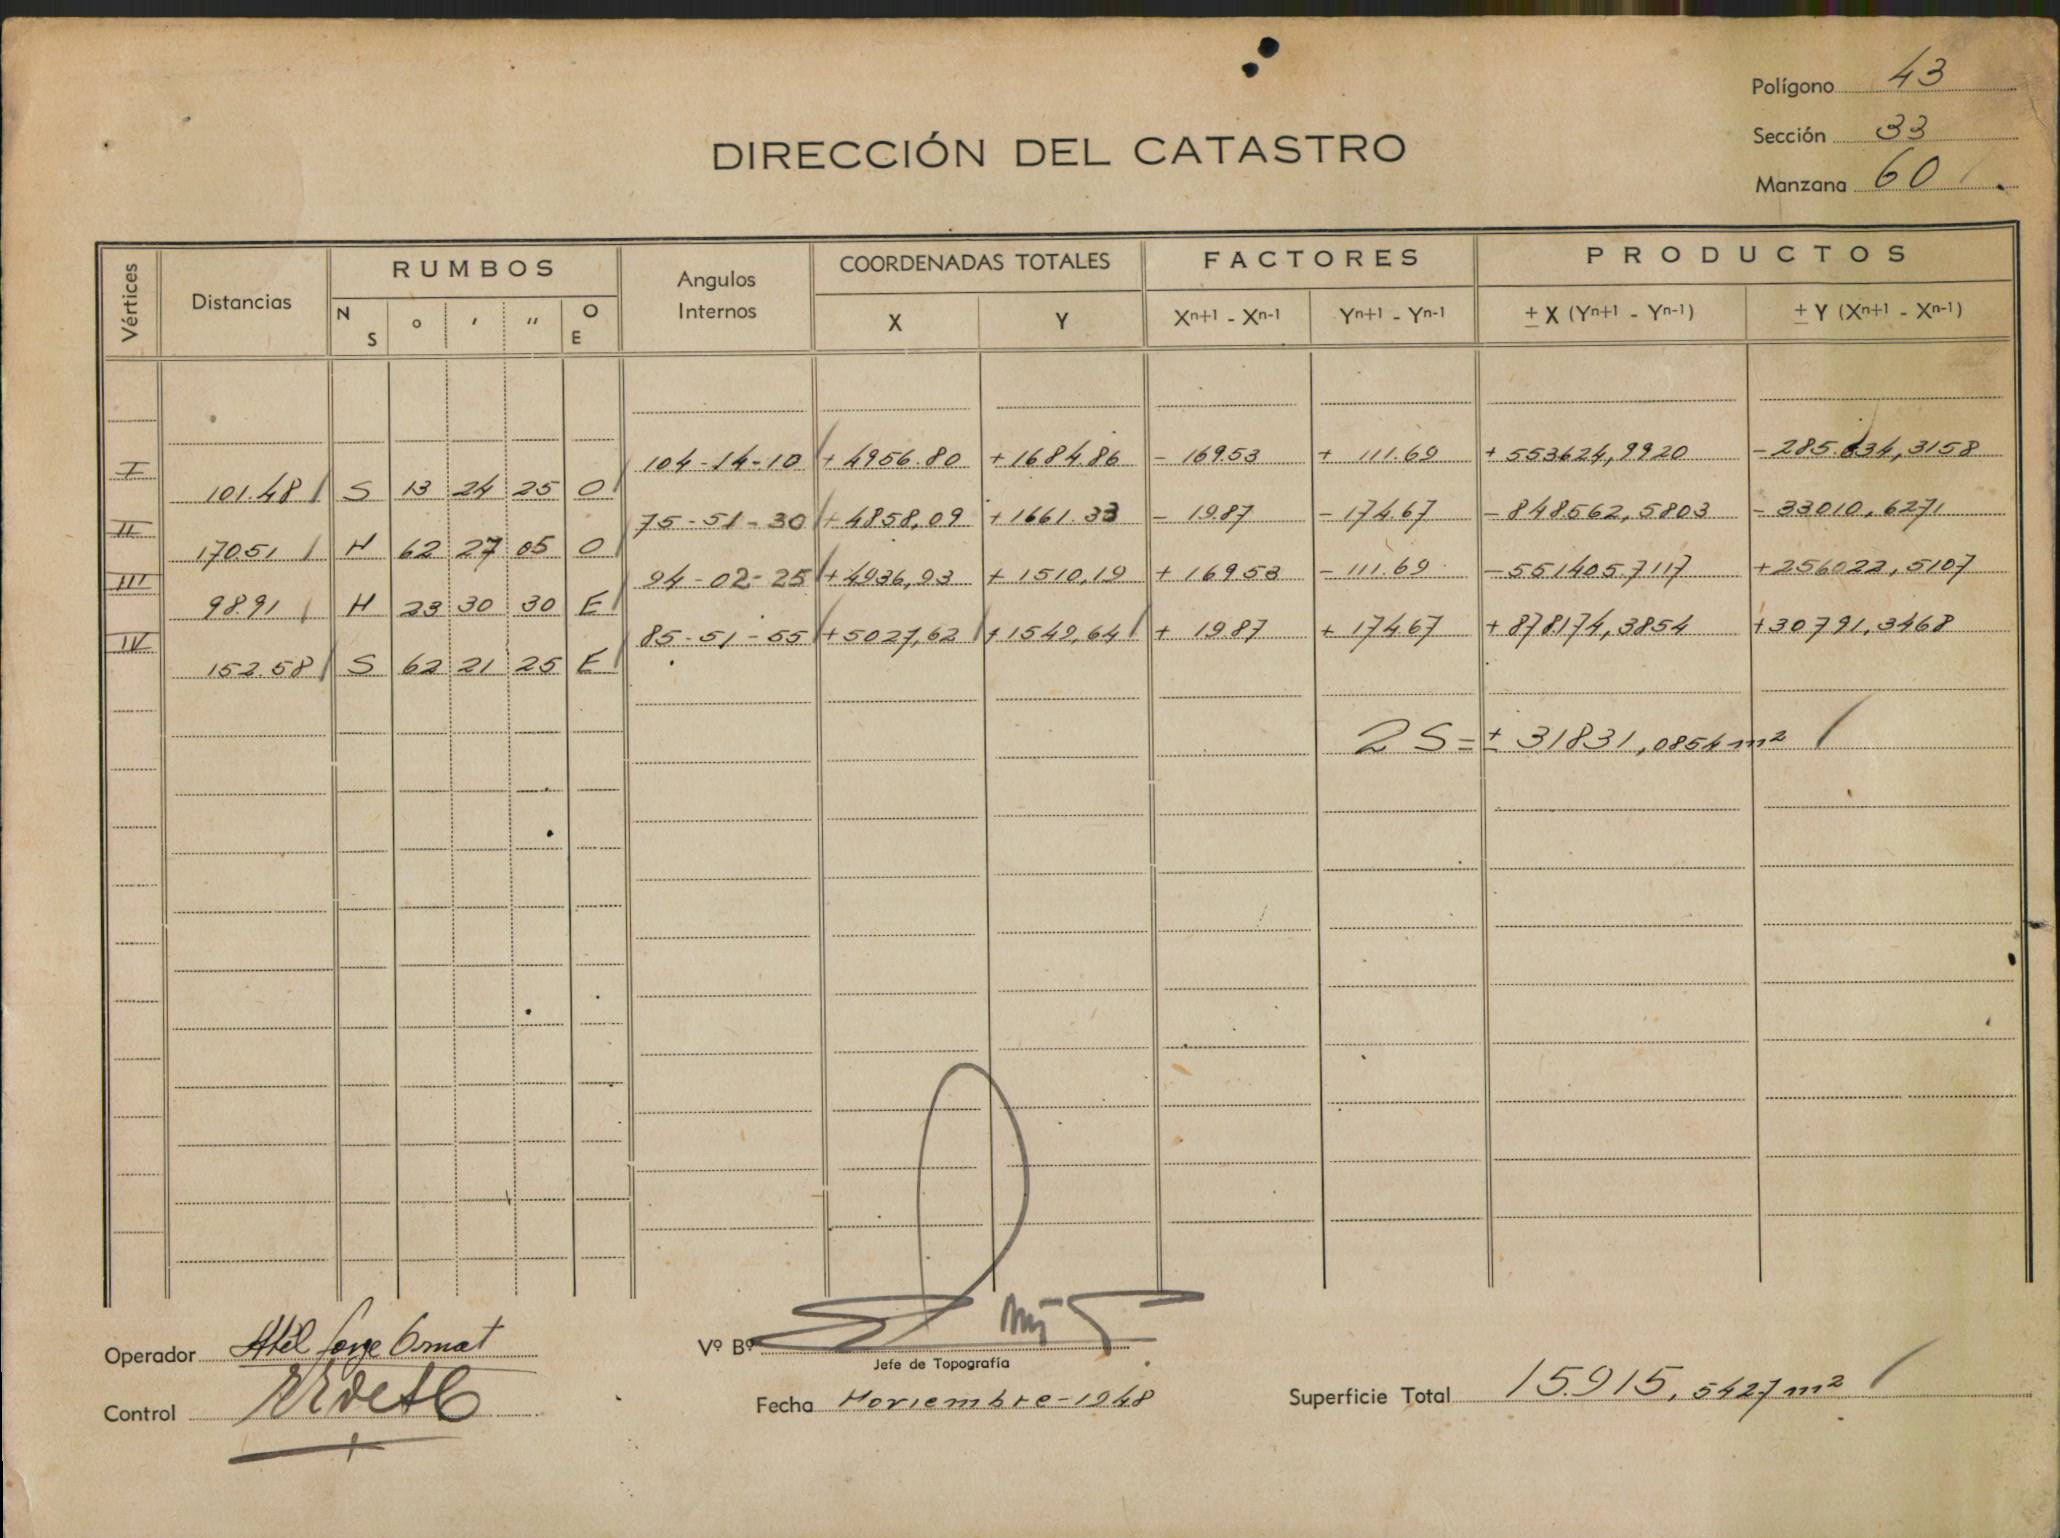 Polígono 43
Sección 33
Manzana 60
DIRECCIÓN DEL CATASTRO
Vértices Distancias RUMBOS Angulos Internos COORDENADAS TOTALES FACTORES PRODUCTOS
N S ° ′ ″ O E X Y Xⁿ⁺¹ - Xⁿ⁻¹ Yⁿ⁺¹ - Yⁿ⁻¹ ± X (Yⁿ⁺¹ - Yⁿ⁻¹) ± Y (Xⁿ⁺¹ - Xⁿ⁻¹)
I 104-14-10 +4956.80 +1684.86 - 169.53 + 111.69 +553624,9920 -285.634,3158
101.48 S 13 24 25 O
II 75-51-30 +4858,09 +1661.33 - 19.87 - 174.67 -848562,5803 - 33010,6271
170.51 N 62 27 05 O
III 94-02-25 +4936,93 +1510,19 + 169.53 - 111.69 -551405.7117 +256022,5107
98.91 N 23 30 30 E
IV 85-51-55 +5027,62 +1549,64 + 19.87 + 174.67 +878174,3854 +30791,3468
152.58 S 62 21 25 E
2S = ± 31831,0854 m²
Operador
Vº Bº
Jefe de Topografía
Control
Fecha Noviembre-1948
Superficie Total 15.915,5427 m²